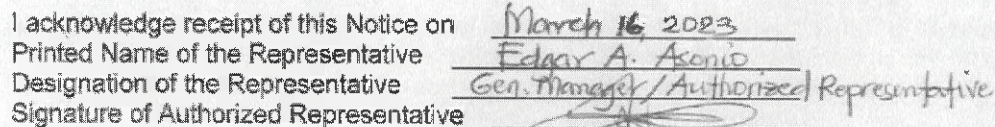 I acknowledge receipt of this Notice on March 16, 2023
Printed Name of the Representative Edgar A. Asonio
Designation of the Representative Gen. Manager/Authorized Representative
Signature of Authorized Representative